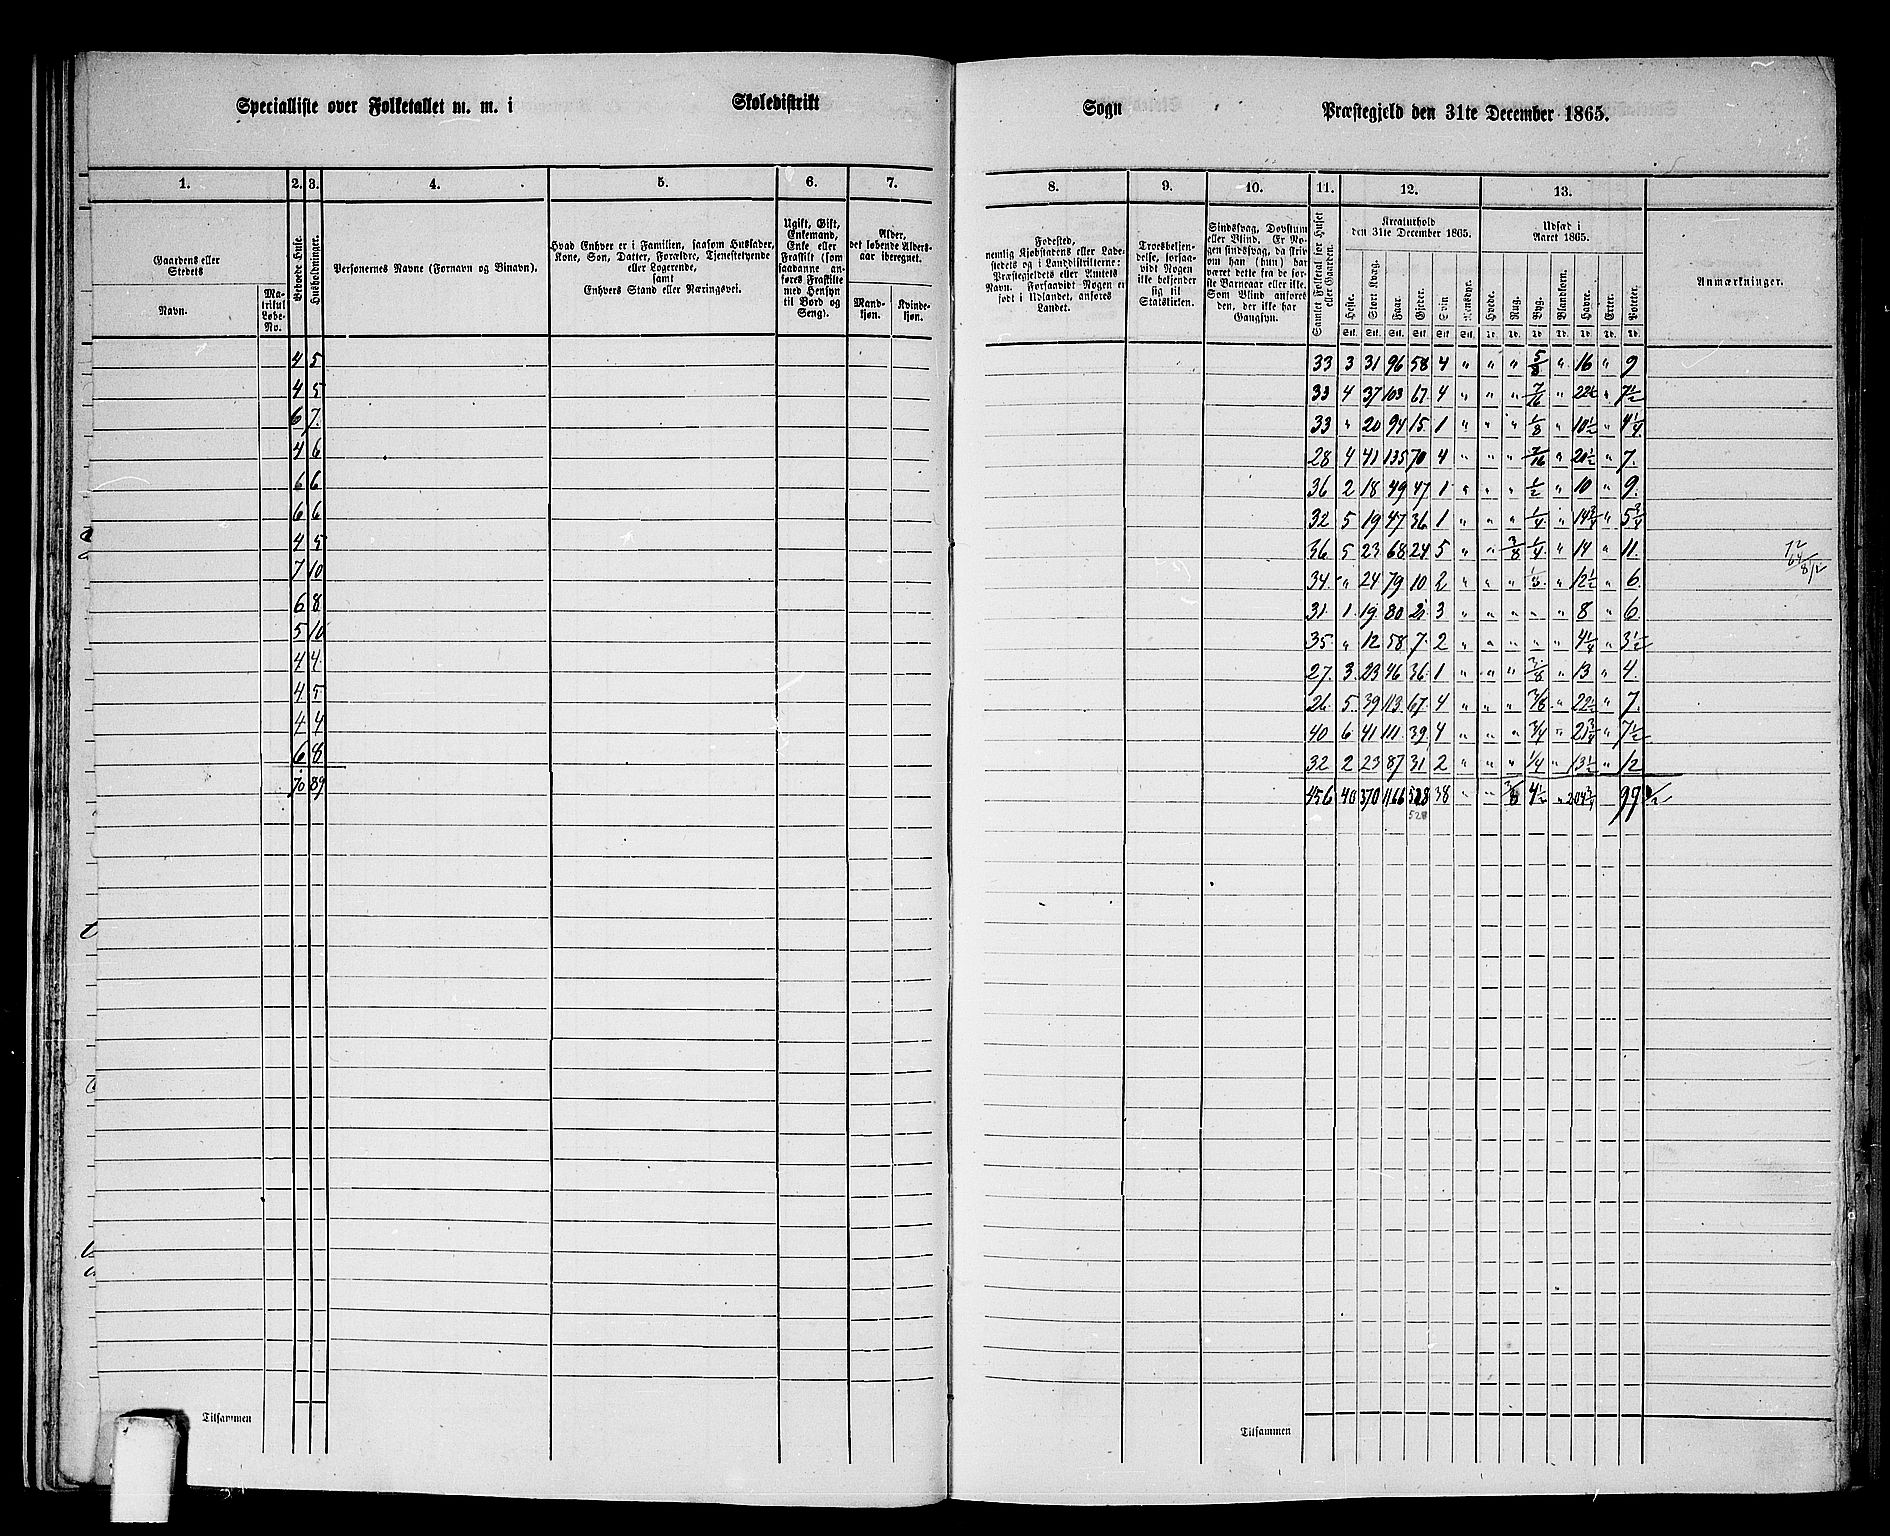 Specialliste over Folketallet m. m. i Skoledistrikt Sogn Præstegjeld den 31te December 1865.
1. 2. 3. 4. 5. 6. 7. 8. 9. 10. 11. 12. 13.
Gaardens eller Stedets
Navn.
Matrikul Løbe-No.
Beboede Huse.
Husholdninger.
Personernes Navne (Fornavn og Binavn).
Hvad Enhver er i Familien, saasom Husfader, Kone, Søn, Datter, Forældre, Tjenestetyende eller Logerende, samt Enhvers Stand eller Næringsvei.
Ugift, Gift, Enkemand, Enke eller Fraskilt (som saadanne anføres Fraskilte med Hensyn til Bord og Seng).
Alder, det løbende Alders-aar iberegnet.
Mand-kjøn. Kvinde-kjøn.
Fødested, nemlig Kjøbstadens eller Ladestedets og i Landdistrikterne: Præstegjeldets eller Amtets Navn. Forsaavidt Nogen er født i Udlandet, anføres Landet.
Troesbekjendelse, forsaavidt Nogen ikke bekjender sig til Statskirken.
Sindssvag, Døvstum eller Blind. Er Nogen sindssvag, da skriv om han (hun) har været dette fra de første Barneaar eller ikke. Som Blind anføres den, der ikke har Gangsyn.
Samlet Folketal for Huset eller Gaarden.
Kreaturhold den 31te December 1865.
Heste. Stort Kvæg. Faar. Gjeder. Svin Rensdyr.
Udsæd i Aaret 1865.
Hvede. Rug. Byg. Blandkorn. Havre. Erter. Poteter.
Anmærkninger.
4 5 33 3 31 96 58 4 " " " 5/8 " 16 " 9
4 5 33 4 37 103 67 4 " " " 7/16 " " 7½
6 7. 33 " 20 94 15 1 " " " 1/8 " 10½ " 4¼
4 6 28 4 41 135 70 4 " " " 7/16 " 20½ " 7.
6 6 36 2 18 49 47 1 " " " ½ " 10 " 9.
6 6 32 5 19 47 36 1 " " " ¼ " 14¾ " 5¾
4 5 36 5 23 68 24 5 " " 3/8 ¼ " 14 " 11.
7 10 34 " 24 79 10 2 " " " 1/8 " 12½ " 6.
6 8 31 1 19 80 21 3 " " " " " 8 " 6
5 10 35 " 12 58 7 2 " " " " " 4¼ " 3½
4 4 27 3 23 46 36 1 " " " 3/8 " 13 " 4.
4 5 26 5 39 113 67 4 " " " 3/16 " 22½ " 7.
4 4 40 6 41 111 39 4 " " " ¾ " 21¾ " 7½
6 8 32 2 23 87 31 2 " " " ¼ " 13½ " 12
70 89 456 40 370 1166 528 38 " " 3/8 4½ " 204¾ 99½
528
Tilsammen Tilsammen